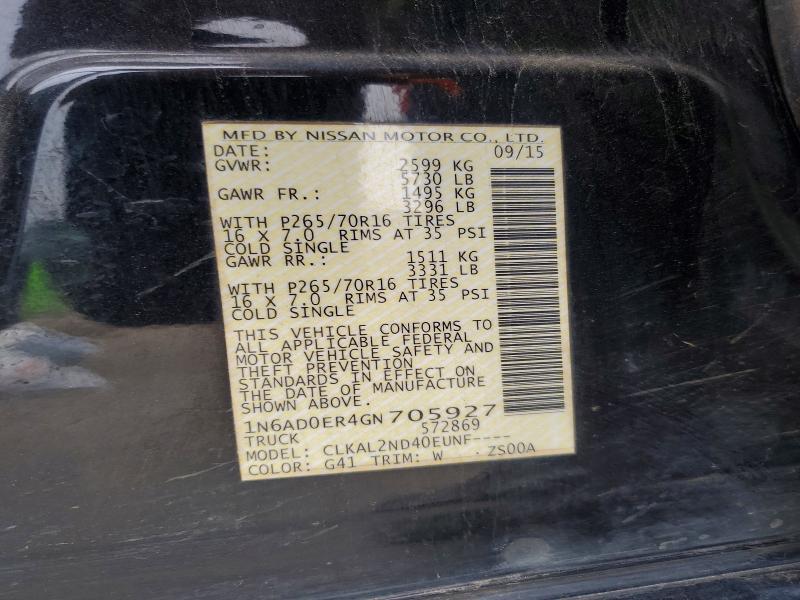 MFD BY NISSAN MOTOR CO., LTD.
DATE: 09/15
GVWR: 2599 KG
5730 LB
GAWR FR.: 1495 KG
3296 LB
WITH P265/70R16 TIRES
16 X 7.0 RIMS AT 35 PSI
COLD SINGLE
GAWR RR.: 1511 KG
3331 LB
WITH P265/70R16 TIRES
16 X 7.0 RIMS AT 35 PSI
COLD SINGLE
THIS VEHICLE CONFORMS TO
ALL APPLICABLE FEDERAL
MOTOR VEHICLE SAFETY AND
THEFT PREVENTION
STANDARDS IN EFFECT ON
THE DATE OF MANUFACTURE
SHOWN ABOVE.
1N6AD0ER4GN705927
TRUCK 572869
MODEL: CLKAL2ND40EUNF----
COLOR: G41 TRIM: W . ZS00A